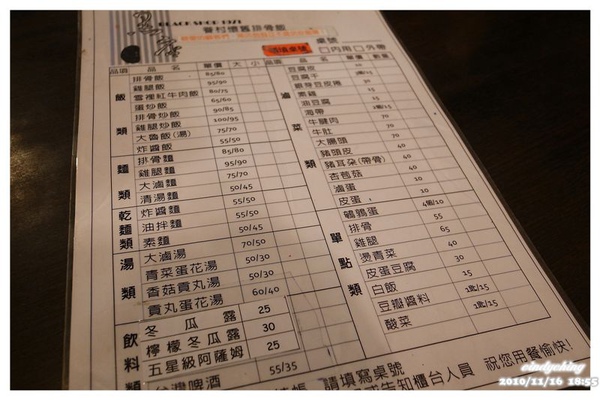 BLACK SHOP 1971
眷村懷舊排骨飯
請填桌號 桌號 □內用 □外帶
品項 品名 單價 大 小 品項 品名 單價 數量
飯類
排骨飯 85/80
雞腿飯 95/90
雪裡紅牛肉飯 80/75
蛋炒飯 65/60
排骨炒飯 90/85
雞腿炒飯 100/95
大滷飯(湯) 75/70
炸醬飯 55/50
麵類
排骨麵 85/80
雞腿麵 95/90
大滷麵 75/70
清湯麵 50/45
乾麵類
炸醬麵 55/50
油拌麵 55/50
素麵 50/45
湯類
大滷湯 70/50
青菜蛋花湯 50/30
香菇貢丸湯 50/30
貢丸蛋花湯 60/40
飲料類
冬瓜露 25
檸檬冬瓜露 30
五星級阿薩姆 25
台灣啤酒 55/35
滷菜類
豆腐皮
豆干
素雞
油豆腐
海帶
牛腱肉
牛肚
大腸頭
豬頭皮
豬耳朵(帶骨)
杏苞菇
滷蛋
皮蛋
鵪鶉蛋 4個/10
單點類
排骨 55
雞腿 65
燙青菜 40
皮蛋豆腐 30
白飯 15
豆瓣醬料 1匙/15
酸菜 1匙/15
請填寫桌號
告知櫃台人員 祝您用餐愉快!
cindyching
2010/11/16 18:55